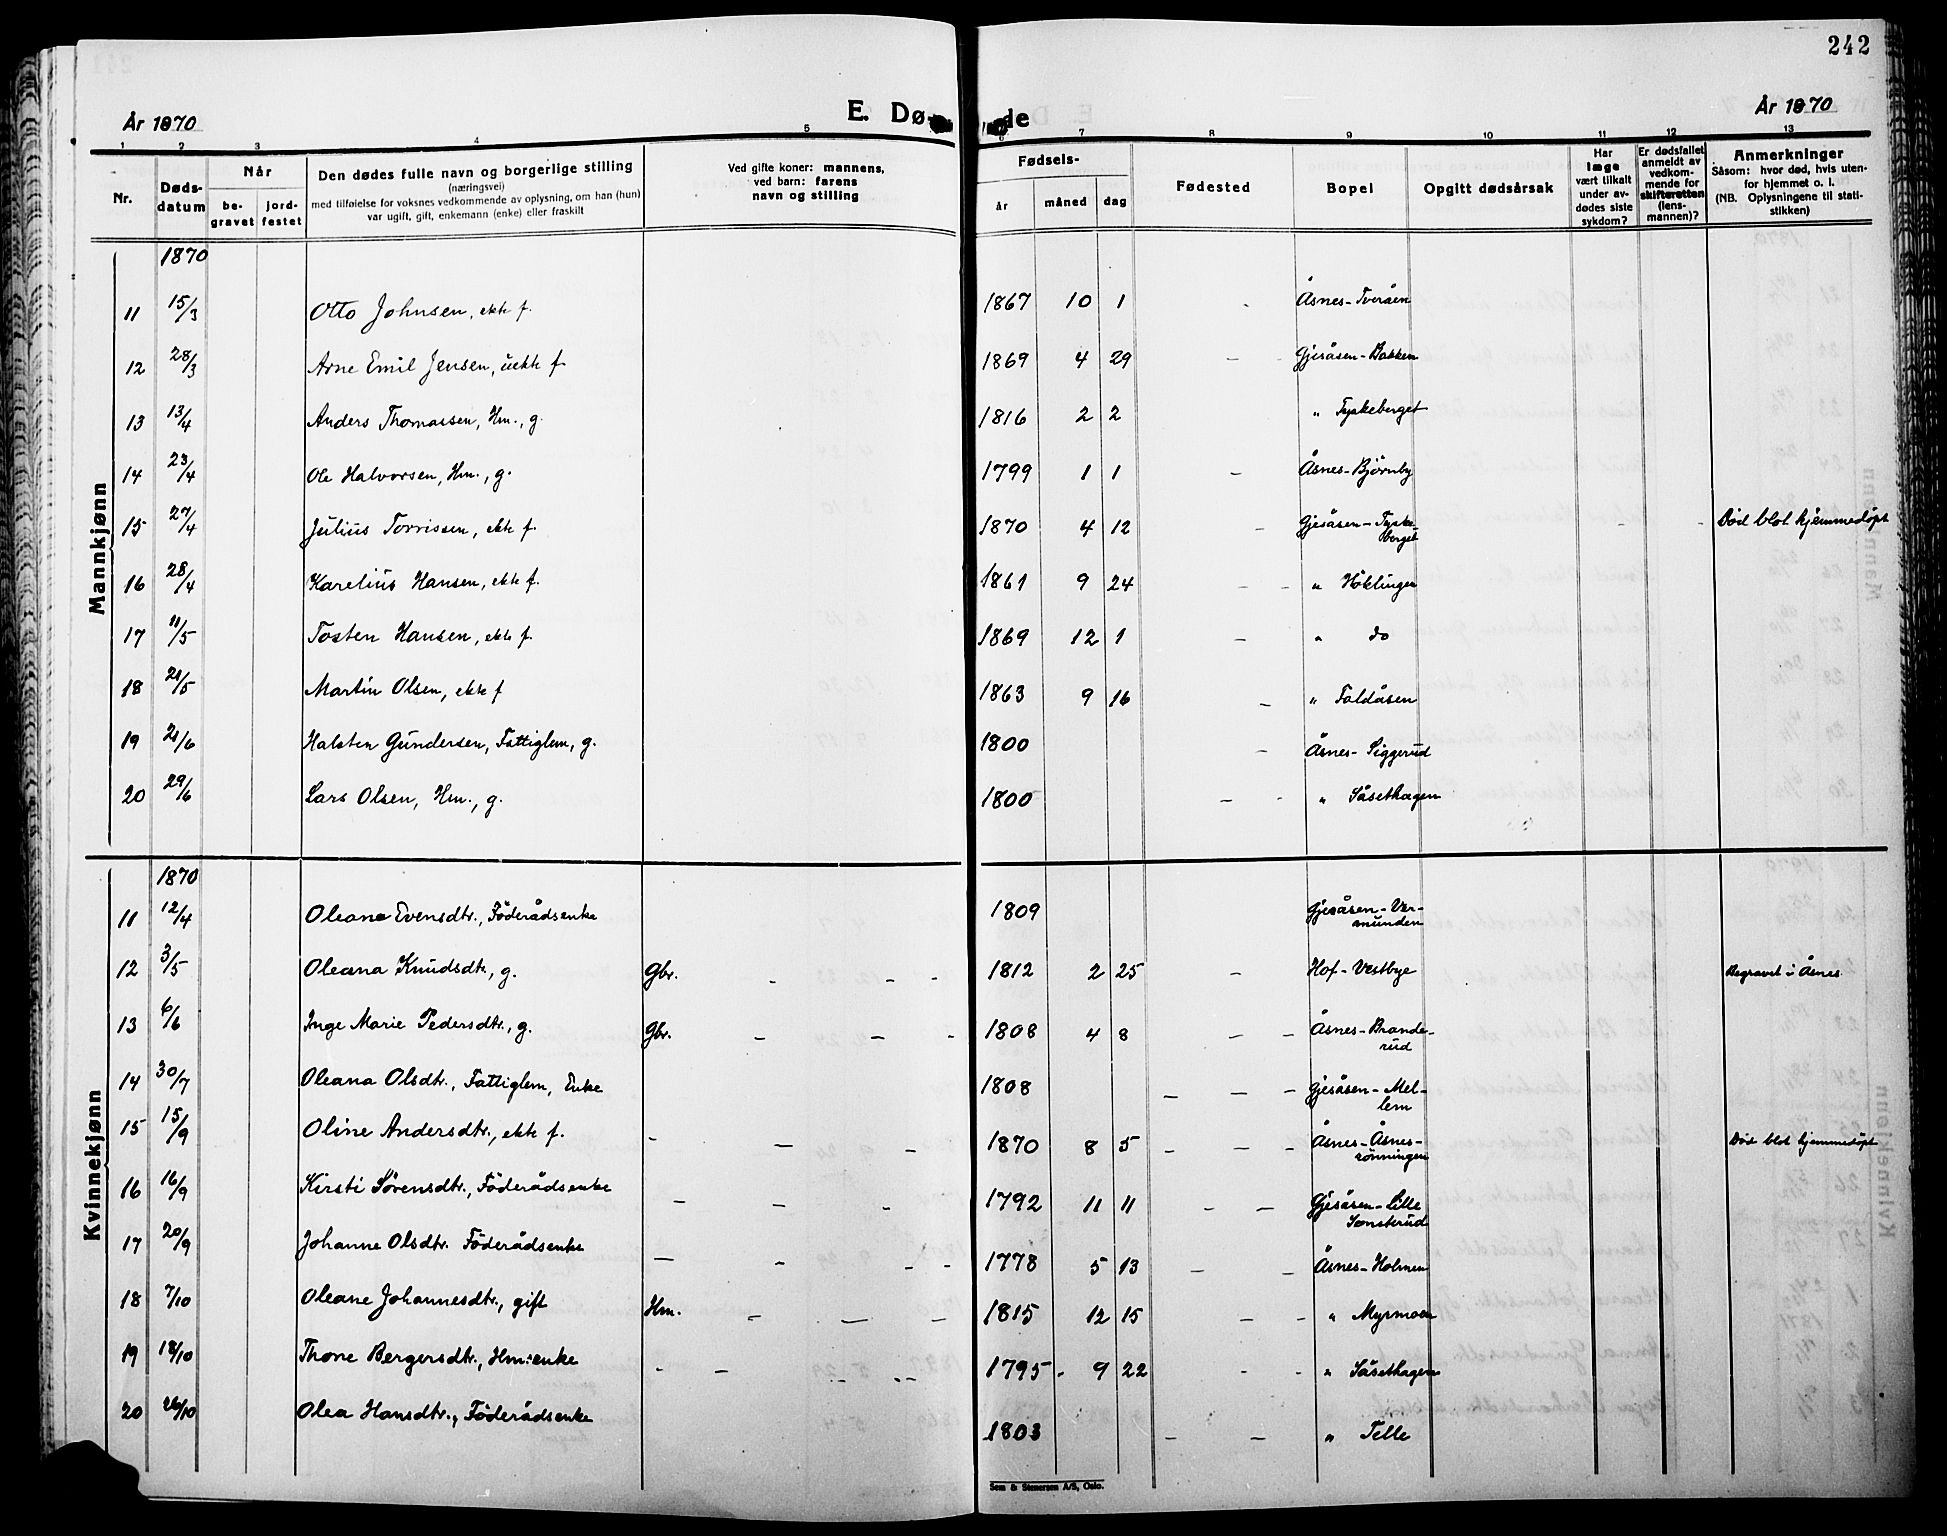 242
År 1870
E. Dø
de
År 1870
1 2 3 4 5 6 7 8 9 10 11 12 13
Nr.
Døds-
datum
Når
be-
gravet
jord-
festet
Den dødes fulle navn og borgerlige stilling
(næringsvei)
med tilføielse for voksnes vedkommende av oplysning, om han (hun)
var ugift, gift, enkemann (enke) eller fraskilt
Ved gifte koner: mannens,
ved barn: farens
navn og stilling
Fødsels-
år
måned
dag
Fødested
Bopel
Opgitt dødsårsak
Har
læge
vært tilkalt
under av-
dødes siste
sykdom?
Er dødsfallet
anmeldt av
vedkom-
mende for
skifteretten
(lens-
mannen)?
Anmerkninger
Såsom: hvor død, hvis uten-
for hjemmet o. l.
(NB. Oplysningene til stati-
stikken)
Mannkjønn
1870
11 15/3 Otto Johnsen, ekte f. 1867 10 1 Åsnes-Tveråen
12 28/3 Arne Emil Jensen, uekte f 1869 4 29 Gjesåsen-Bakken
13 13/4 Anders Thomassen, Hm., g. 1816 2 2 " Tyskeberget
14 23/4 Ole Halvorsen, Hm., g. 1799 1 1 Åsnes-Björnby
15 27/4 Julius Torrissen, ekte f. 1870 4 12 Gjesåsen-Tyske-
berget
Död blot hjemmedöpt
16 28/4 Karelius Hansen, ekte f. 1861 9 24 " Höklingen
17 11/5 Tosten Hansen, ekte f. 1869 12 1 " do
18 21/5 Martin Olsen, ekte f 1863 9 16 " Faldåsen
19 21/6 Halsten Gundersen, Fattiglem, g. 1800 Åsnes-Siggerud
20 29/6 Lars Olsen, Hm., g. 1800 " Såsethagen
Kvinnekjønn
1870
11 12/4 Oleane Evensdtr., Föderådsenke 1809 Gjesåsen-Ver-
munden
12 3/5 Oleana Knudsdtr., g. Gbr. 1812 2 25 Hof-Vestbye Begravet i Åsnes.
13 6/6 Inge Marie Pedersdtr., g. Gbr. 1808 4 8 Åsnes-Brande-
rud
14 30/7 Oleana Olsdtr., Fattiglem, Enke 1808 Gjesåsen-Mel-
lem
15 15/9 Oline Andersdtr., ekte f. 1870 8 5 Åsnes-Åsnes-
rönningen
Död blot hjemmedöpt
16 16/9 Kirsti Sörensdtr., Föderådsenke 1792 11 11 Gjesåsen-Lille
Sönsterud
17 20/9 Johanne Olsdtr. Föderådsenke 1778 5 13 Åsnes-Holmen
18 7/10 Oleane Johannesdtr., gift Hm. 1815 12 15 " Myrmoen
19 18/10 Thone Bergersdtr., Hm:enke 1795 9 22 " Såsethagen
20 26/10 Olea Hansdtr., Föderådsenke 1803 " Telle
Sem & Stenersen A/S, Oslo.